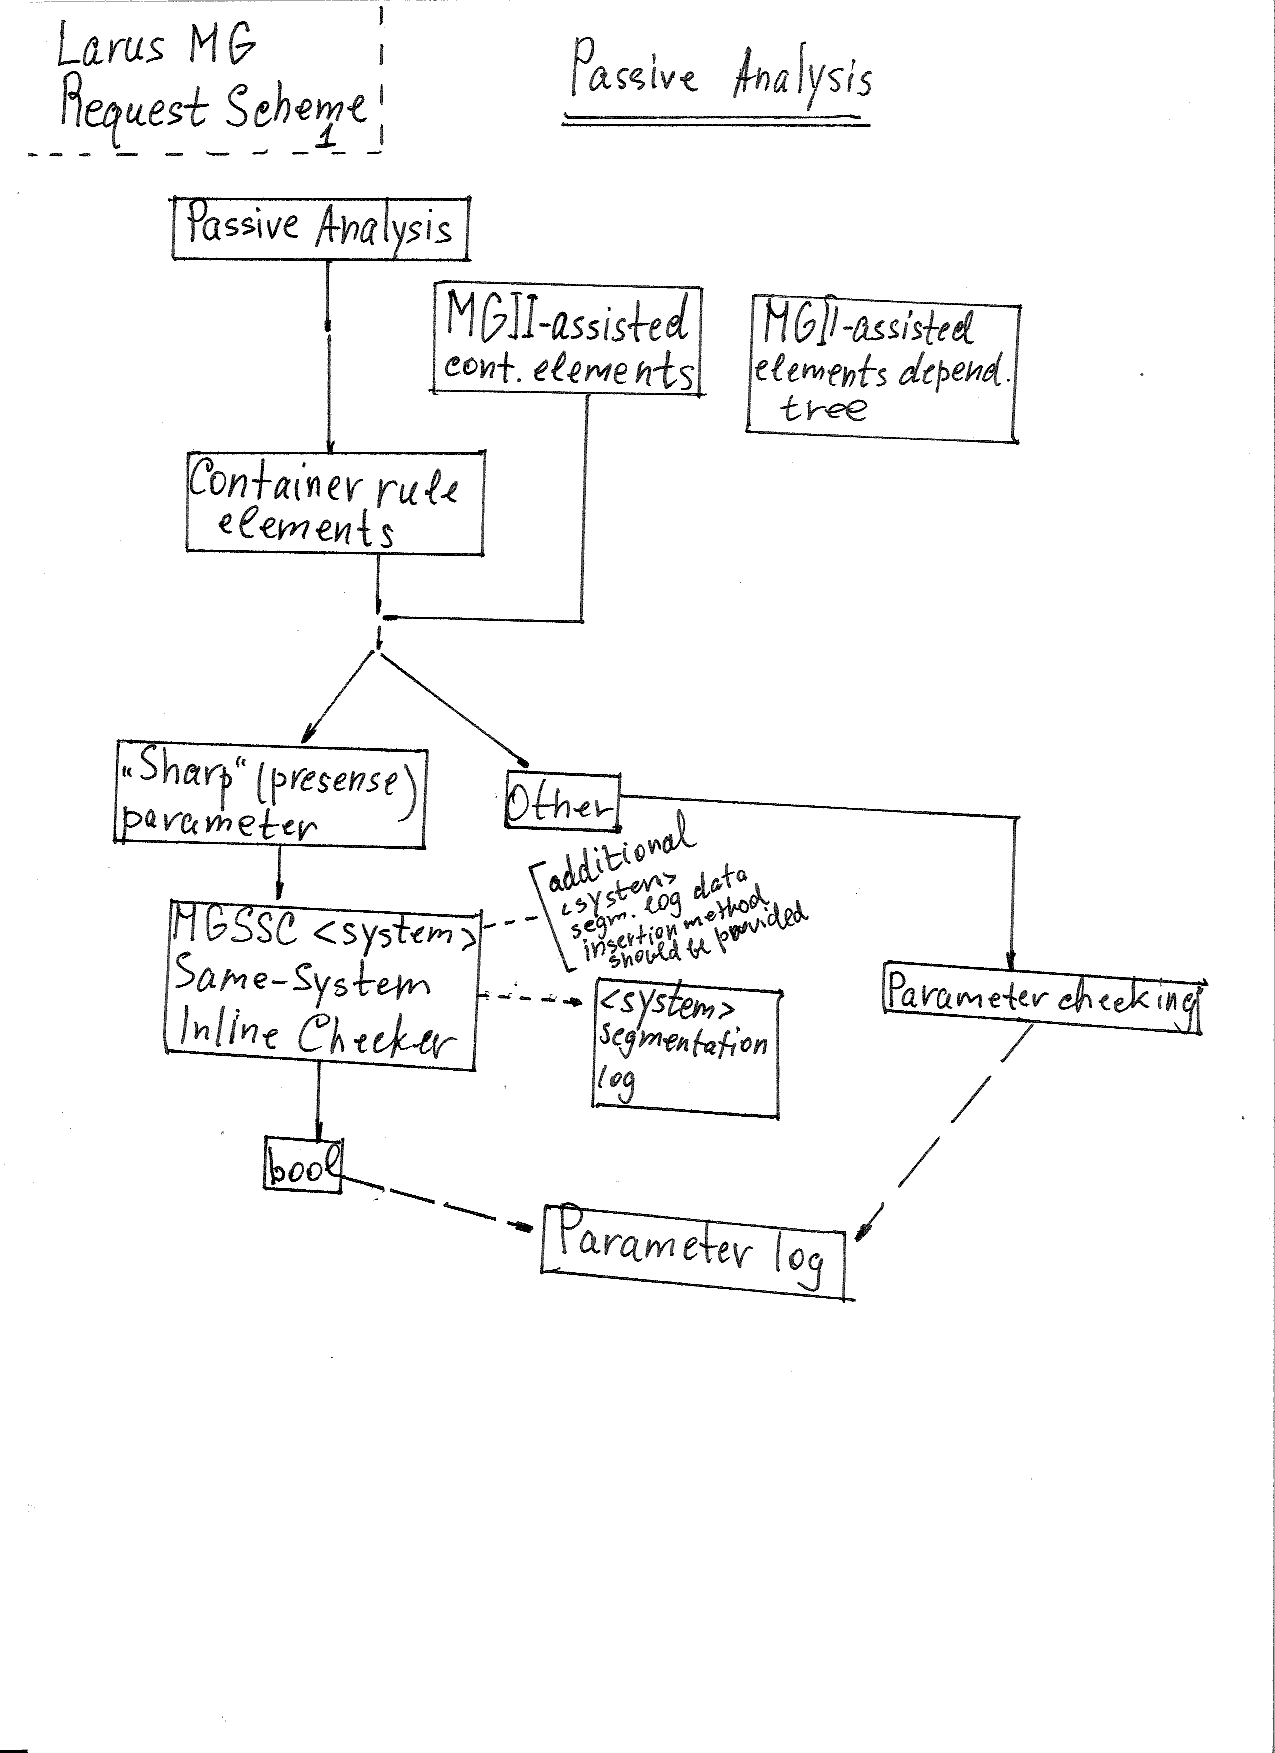 Larus MG
Request Scheme
1
Passive Analysis
Passive Analysis
MGII-assisted
cont. elements
MGII-assisted
elements depend.
tree
Container rule
elements
„Sharp“ (presense)
parameter
Other
additional
<system>
segm. log data
insertion method
should be provided
MGSSC <system>
Same-System
Inline Checker
<system>
segmentation
log
Parameter checking
bool
Parameter log